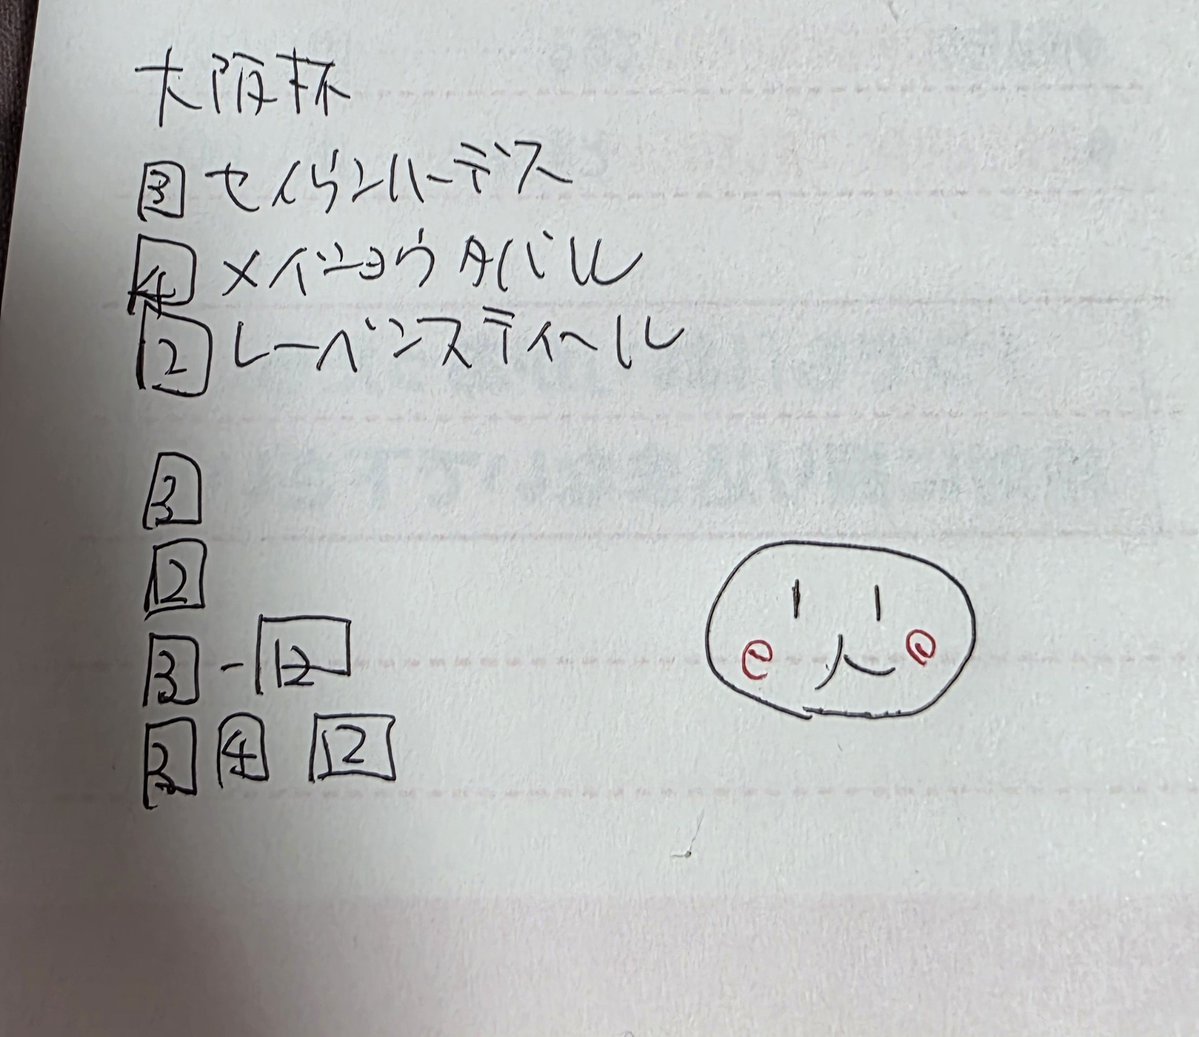 大阪杯
3 セイウンハーデス
4 メイショウタバル
12 レーベンスティール
3
12
3 - 12
3 4 12